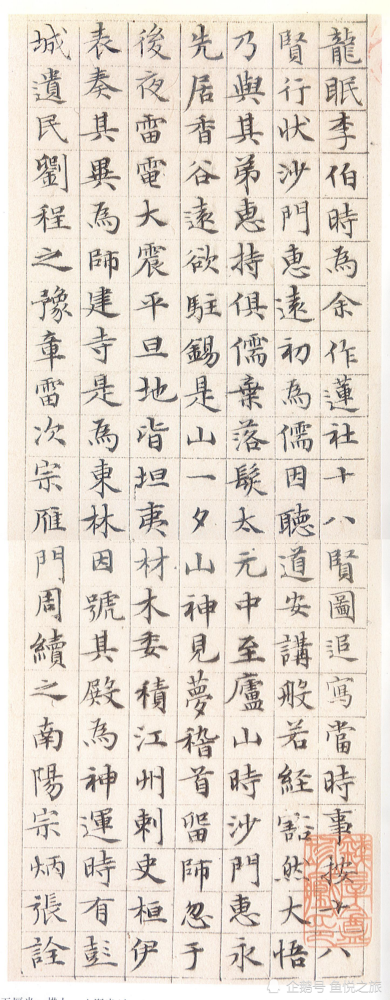 龍眠李伯時為余作蓮社十八賢圖追寫當時事按十八
賢行狀沙門惠遠初為儒因聽道安講般若経豁然大悟
乃與其弟惠持俱儒棄落髮太元中至廬山時沙門惠永
先居香谷遠欲駐錫是山一夕山神見夢稽首留師忽于
後夜雷電大震平旦地皆坦夷材木委積江州刺史桓伊
表奏其異為師建寺是為東林因號其殿為神運時有彭
城遺民劉程之豫章雷次宗雁門周續之南陽宗炳張詮
企鹅号 鱼悦之旅